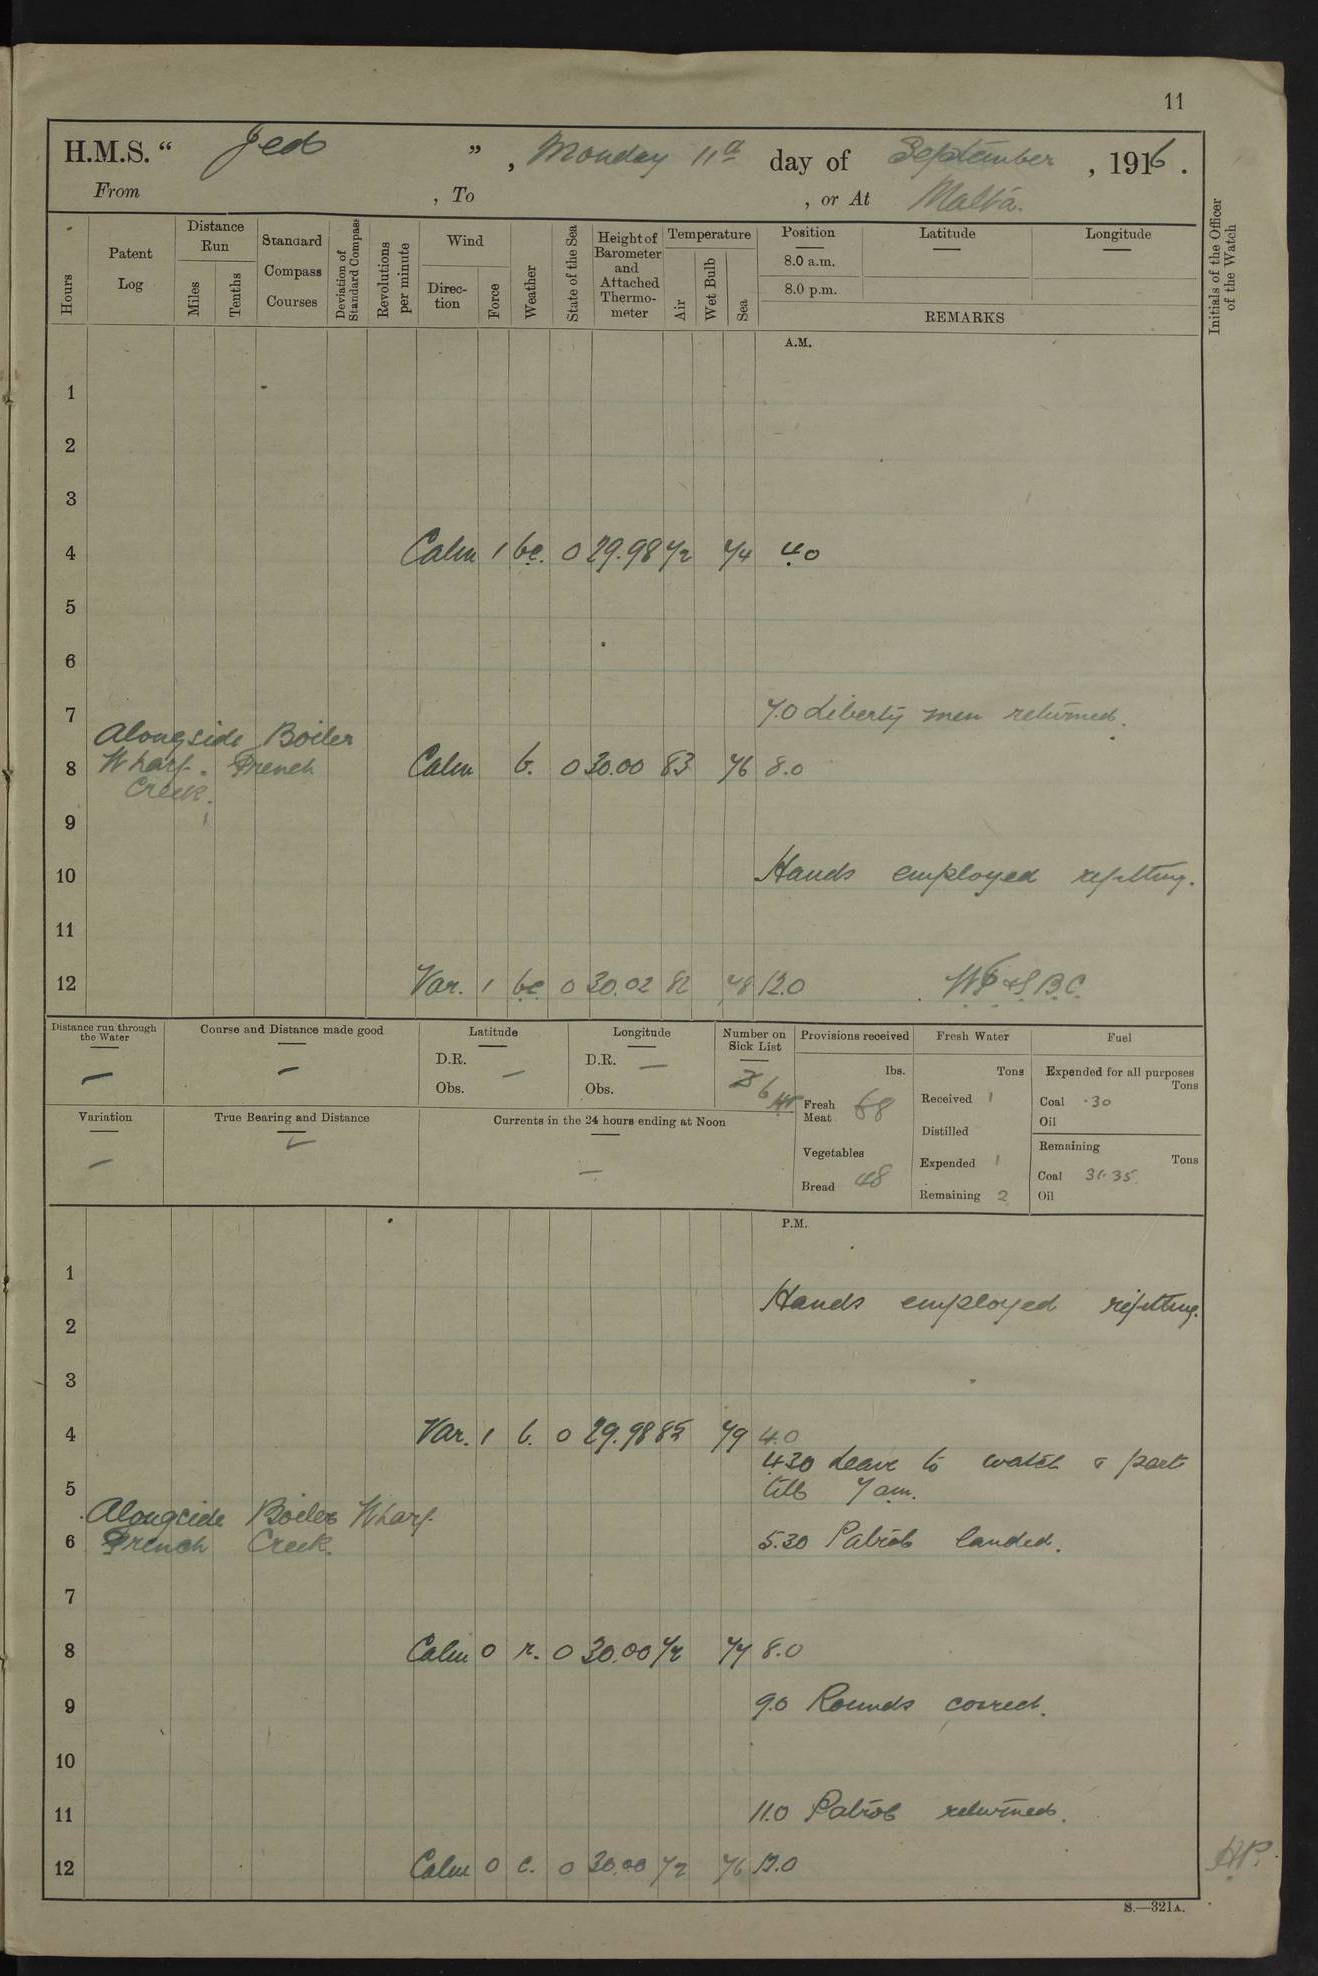 11
H.M.S. “ Jed ” , Monday 11th day of September , 1916 .
From , To , or At Malta.
Hours
Patent Log
Distance Run
Miles
Tenths
Standard Compass Courses
Deviation of Standard Compass
Revolutions per minute
Wind
Direction
Force
Weather
State of the Sea
Height of Barometer and Attached Thermometer
Temperature
Air
Wet Bulb
Sea
Position
8.0 a.m.
8.0 p.m.
Latitude —
Longitude —
REMARKS
Initials of the Officer of the Watch
A.M.
1
2
3
4 Calm 1 bc. 0 29.98 72 74 4.0
5
6
7 7.0 Liberty men returned.
Alongside Boiler
8 Wharf. French Calm b. 0 30.00 83 76 8.0
Creek.
9
10 Hands employed refitting.
11
12 Var. 1 bc 0 30.02 82 78 12.0
Distance run through the Water —
Course and Distance made good —
Latitude
D.R. —
Obs.
Longitude
D.R. —
Obs.
Number on Sick List
6
Provisions received
lbs.
Fresh Meat 68
Vegetables
Bread 48
Fresh Water
Tons
Received 1
Distilled
Expended 1
Remaining 2
Fuel
Expended for all purposes
Tons
Coal ·30
Oil
Remaining
Tons
Coal 31·35
Oil
Variation —
True Bearing and Distance
Currents in the 24 hours ending at Noon —
P.M.
1
Hands employed refitting.
2
3
4 Var. 1 b. 0 29.98 85 79 4.0
4.30 Leave to watch & part
5 till 7 am.
Alongside Boiler Wharf.
6 French Creek. 5.30 Patrol landed.
7
8 Calm 0 r. 0 30.00 72 77 8.0
9 9.0 Rounds correct.
10
11 11.0 Patrol returned.
12 Calm 0 c. 0 30.00 72 76 12.0
S.—321A.